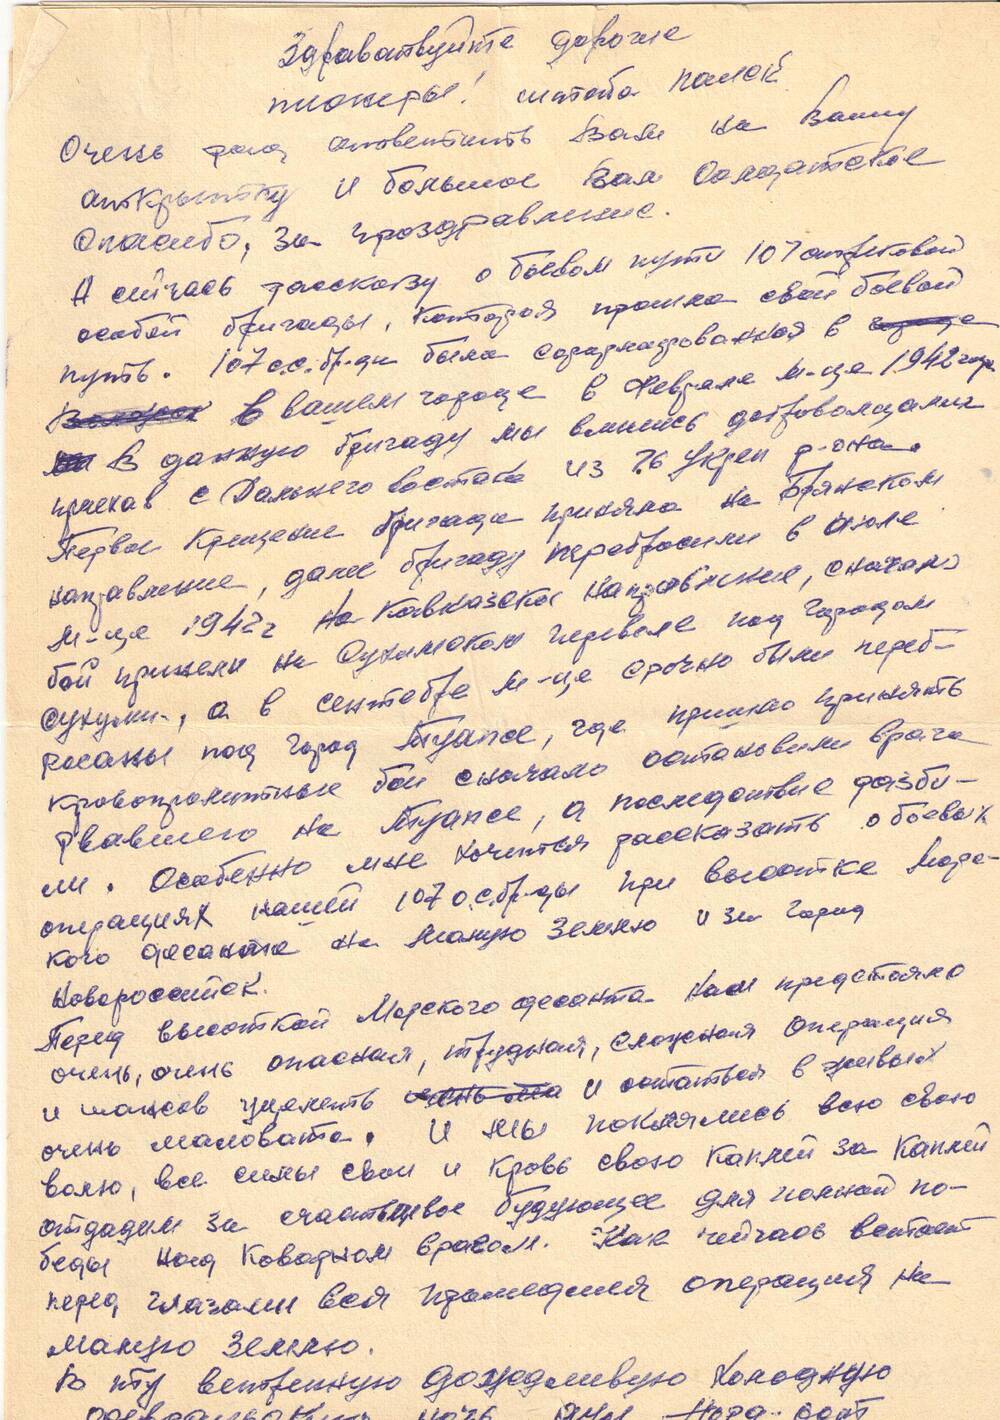 Здравствуйте дорогие
пионеры! штаба поиск
Очень рад ответить Вам на Вашу
открытку и большое Вам Солдатское
Спасибо, за проздравление.
А сейчас расскажу о боевом пути 107 стрелковой
особой бригады, которая прошла свой боевой
путь. 107 о.с.бр-да была сформированная в городе
в вашем городе в Феврале м-це 1942 года
В данную бригаду мы влились добровольцами
приехав с Дальнего востока из 76 Укреп р-она.
Первое Крещение бригада приняла на Брянском
направление, далее бригаду перебросили в июле
м-це 1942 г на Кавказское направление, сначало
бой приняли на Сухумском перевале под городом
Сухуми, а в сентябре м-це срочно были переб-
росаны под город Туапсе, где пришлось принять
кровопролитные бои сначало остановили врага
рвавшего на Туапсе, а последствие разби-
ли. Особенно мне хочится рассказать о боевых
операциях нашей 107 о.с.бр-ды при высотке Морс-
кого десанта на Малую Землю и за город
Новороссийск.
Перед высоткой Морского десанта нам предстояло
очень, очень опасная, трудная, сложная операция
и шансов уцелеть и остаться в живых
очень маловато. И мы поклялись всю свою
волю, все силы свои и кровь свою каплей за каплей
отдадим за счастливое будующее для полной по-
беды над коварном врагом. Как сейчас встает
перед глазами вся прошедшая операция на
Малую Землю.
В ту ветренную дождливую холодную
февральскую ночь